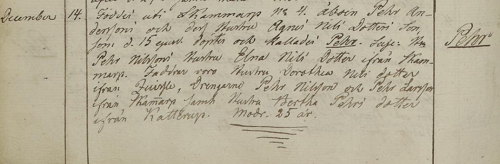 December 14. Föddes uti Skammarp No 4. Åboen Pehr An-
derssons och dess Hustru Agnes Nils Dotters Son
döpt och kallades Pehr. Pehr
Pehr Nilssons Hustru Elna Nils Dotter ifrån Skam-
marp. Faddrar voro Hustru Dorothea Nils dotter
ifrån Drengarne Pehr Nilsson och Pehr Larsson
ifrån Skamarp samt Hustru Bertha Pehrs dotter
ifrån Kätterup. Modr. 25 år.